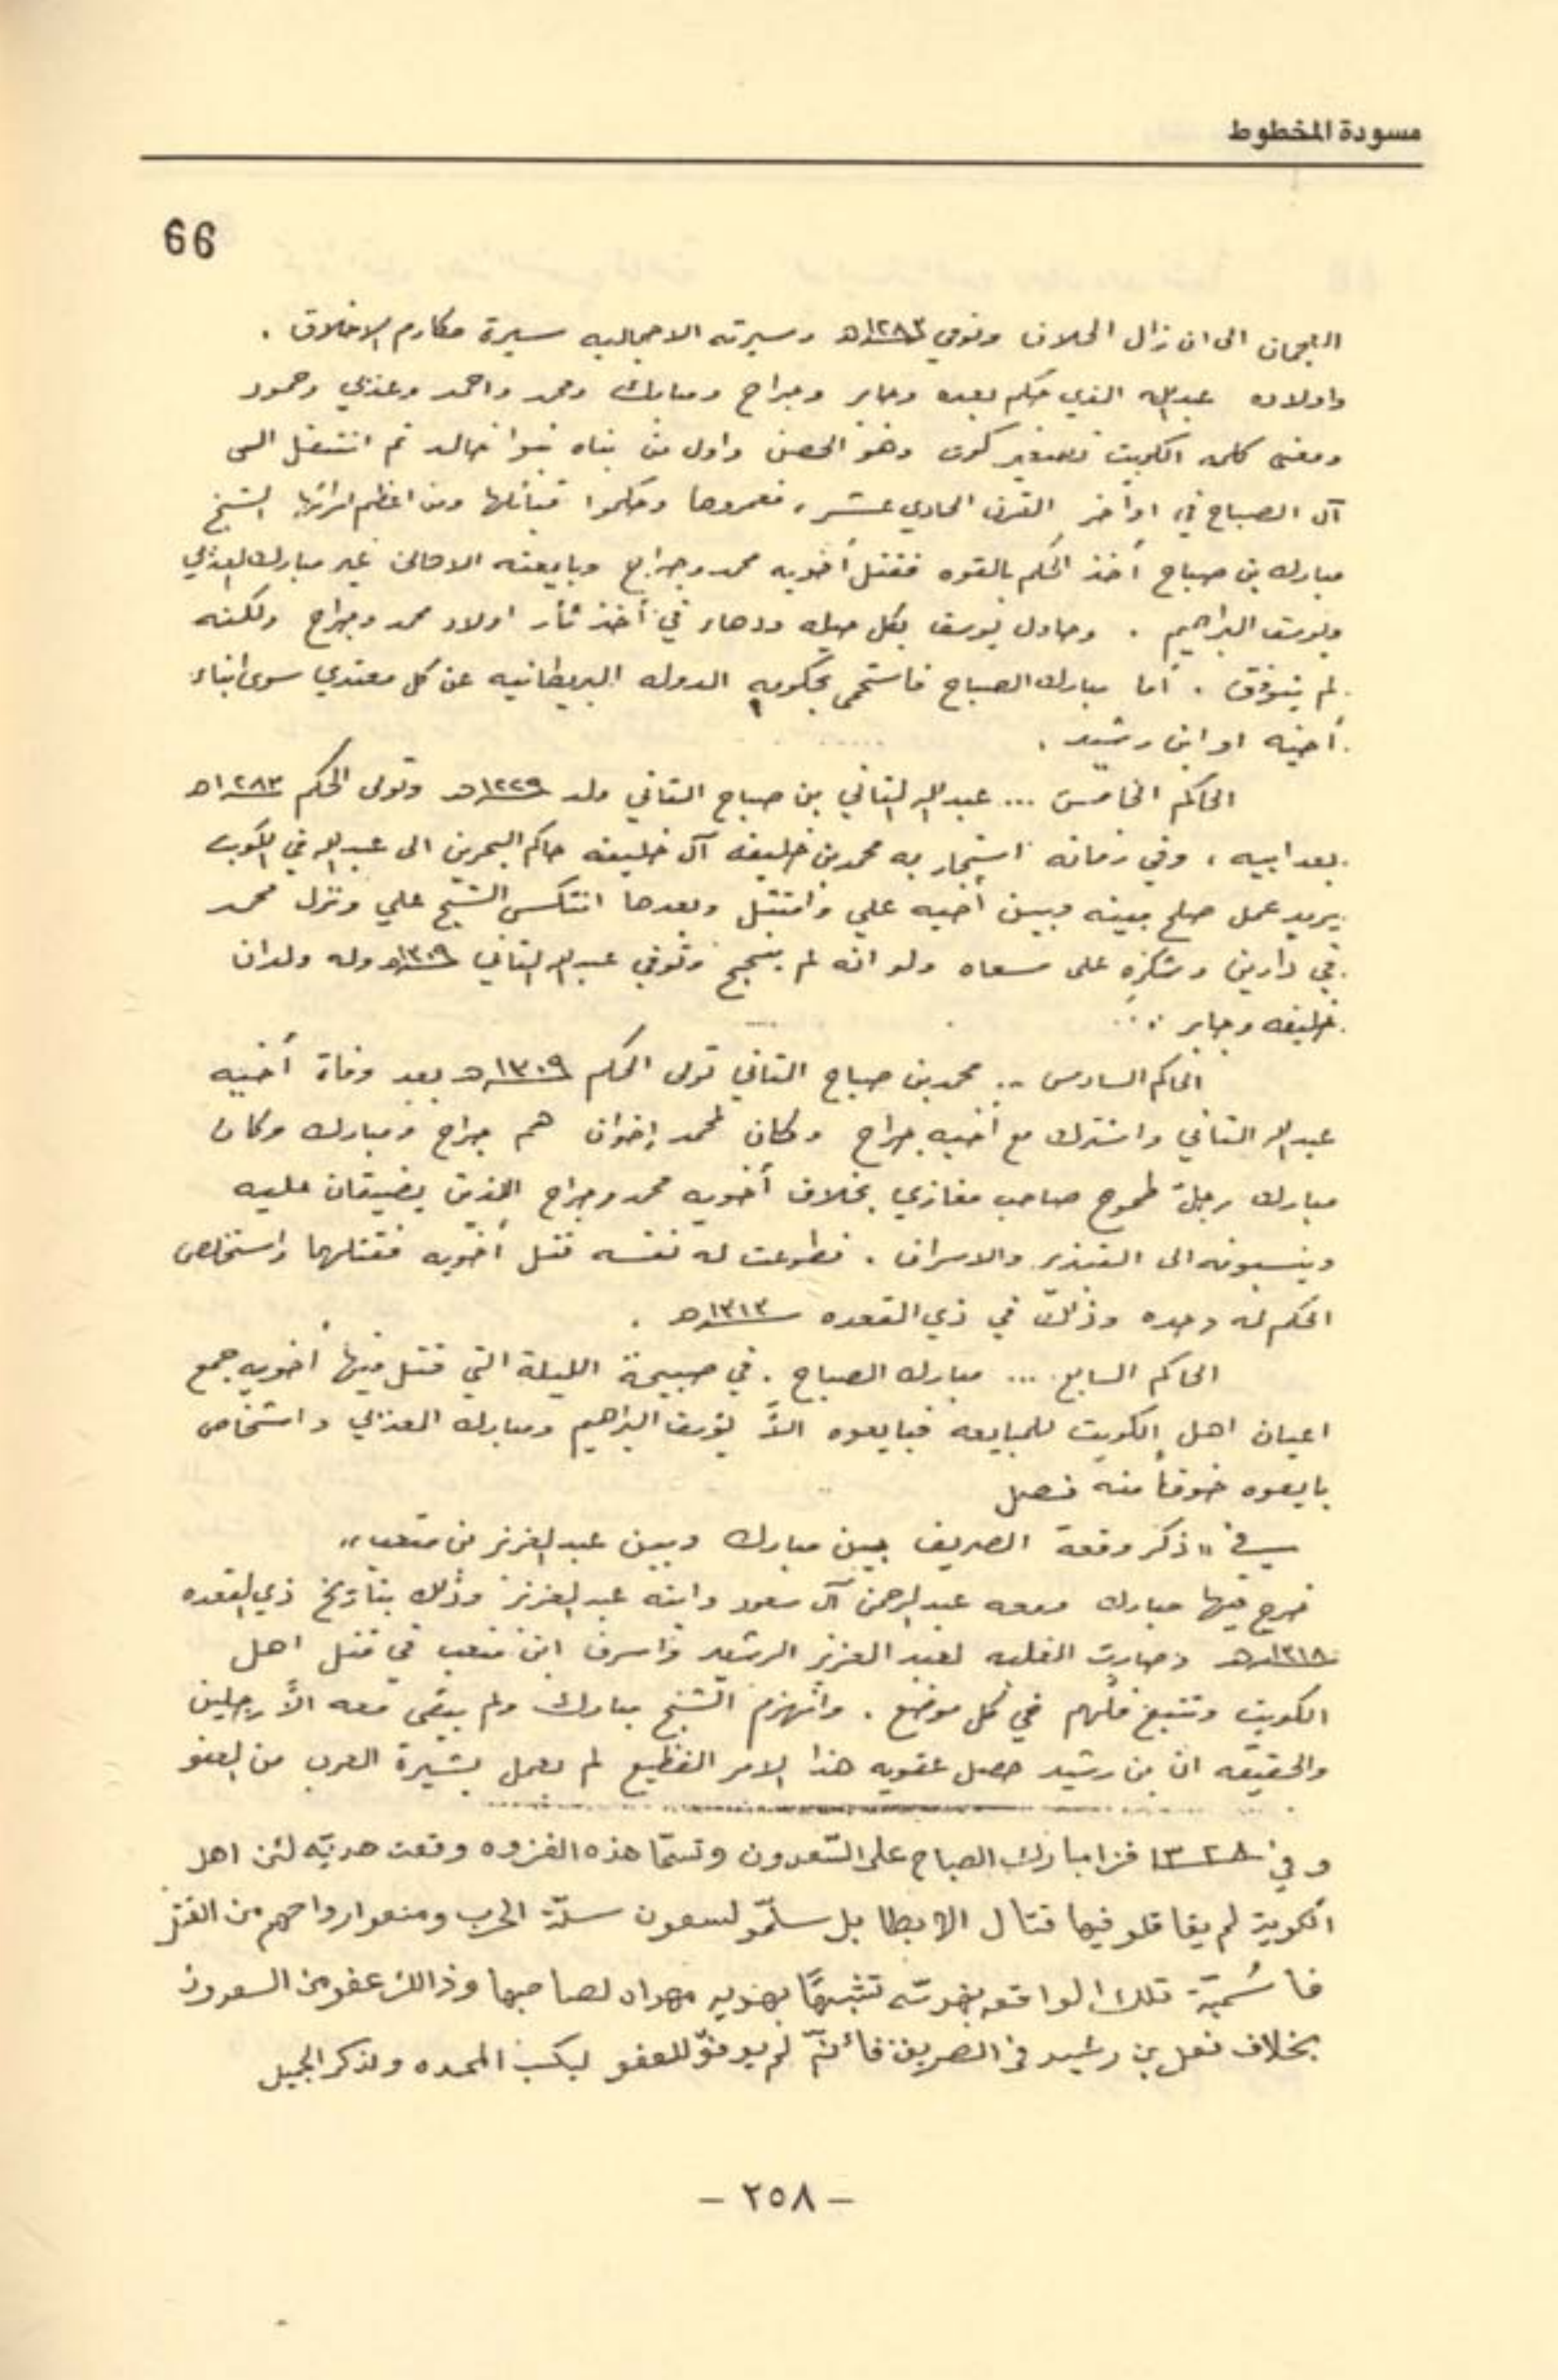 مسودة المخطوط
66
العجمان الى ان زال الخلاف وتوفي ١٢٨٣هـ وسيرته الاجماليه سيرة مكارم الاخلاق .
واولاده عبدالله الذي حكم بعده وجابر وجراح ومبارك ومحمد واحمد وعذبي وحمود
ومعنى كلمه الكويت تصغير كوت وهو الحصن واول من بناه بنوا خالد ثم انتقل الى
آل الصباح في اواخر القرن الحادي عشر ، فعمروها وحكموا قبائلها ومن اعظم امرائها الشيخ
مبارك بن صباح أخذ الحكم بالقوه فقتل أخويه محمد وجراح وبايعته الاهالي غير مبارك العذبي
ويوسف البراهيم . وحاول يوسف بكل حيله ودهاء في أخذ ثأر اولاد محمد وجراح ولكنه
لم يتوفق . أما مبارك الصباح فاستحمى بحكومه الدوله البريطانيه عن كل معتدي سوى ابناء
أخيه او ابن رشيد .
الحاكم الخامس ... عبدالله الثاني بن صباح الثاني ولد ١٢٢٩هـ وتولى الحكم ١٢٨٣هـ
بعد ابيه ، وفي زمانه استجار به محمد بن خليفه آل خليفه حاكم البحرين الى عبدالله في الكويت
يريد عمل صلح بينه وبين أخيه علي وامتثل وبعدها انتكس الشيخ علي ونزل محمد
في دارين وشكره على مسعاه ولو انه لم ينجح وتوفي عبدالله الثاني ١٣٠٩هـ وله ولدان
خليفه وجابر ..
الحاكم السادس .. محمد بن صباح الثاني تولى الحكم ١٣٠٩هـ بعد وفاة أخيه
عبدالله الثاني واشترك مع أخيه جراح وكان لمحمد إخوان هم جراح ومبارك وكان
مبارك رجلاً طموح صاحب مغازي بخلاف أخويه محمد وجراح الذين يضيقان عليه
وينسبونه الى التبذير والاسراف . فطوعت له نفسه قتل أخويه فقتلهما واستخلص
الحكم له وحده وذالك في ذي القعده ١٣١٣هـ .
الحاكم السابع ... مبارك الصباح . في صبيحة الليلة التي قتل فيها أخويه جمع
اعيان اهل الكويت للمبايعه فبايعوه الاّ يوسف البراهيم ومبارك العذبي واشخاص
بايعوه خوفاً منه فصل
في " ذكر وقعة الصريف بين مبارك وبين عبدالعزيز بن متعب "
خرج فيها مبارك ومعه عبدالرحمن آل سعود وابنه عبدالعزيز وذلك بتاريخ ذي القعده
١٣١٨هـ وصارت الغلبه لعبد العزيز الرشيد واسرف ابن متعب في قتل اهل
الكويت وتتبع فلهم في كل موضع . وانهزم الشيخ مبارك ولم يبقى معه الاّ رجلين
والحقيقه ان بن رشيد حصل عقوبه هذا الامر الفظيع لم يعمل بشيرة العرب من العفو
وفي ١٣٢٨ غزا مبارك الصباح على السّعدون وتسمّا هذه الغزوه وقعت هديّه لئن اهل
الكويت لم يقاتلو فيها قتال الابطا بل سلّمو لسعون سلّة الحرب ومنعو ارواحهم من القتل
فا سُميّة تلك الواقعه تشبيهًا بهديه مهداه لصاحبها وذالك عفو من السعدون
بخلاف فعل بن رشيد في الصريف فأنّه لم يوفق للعفو ليكسب المحمده ولذكر الجميل
- ٢٥٨ -